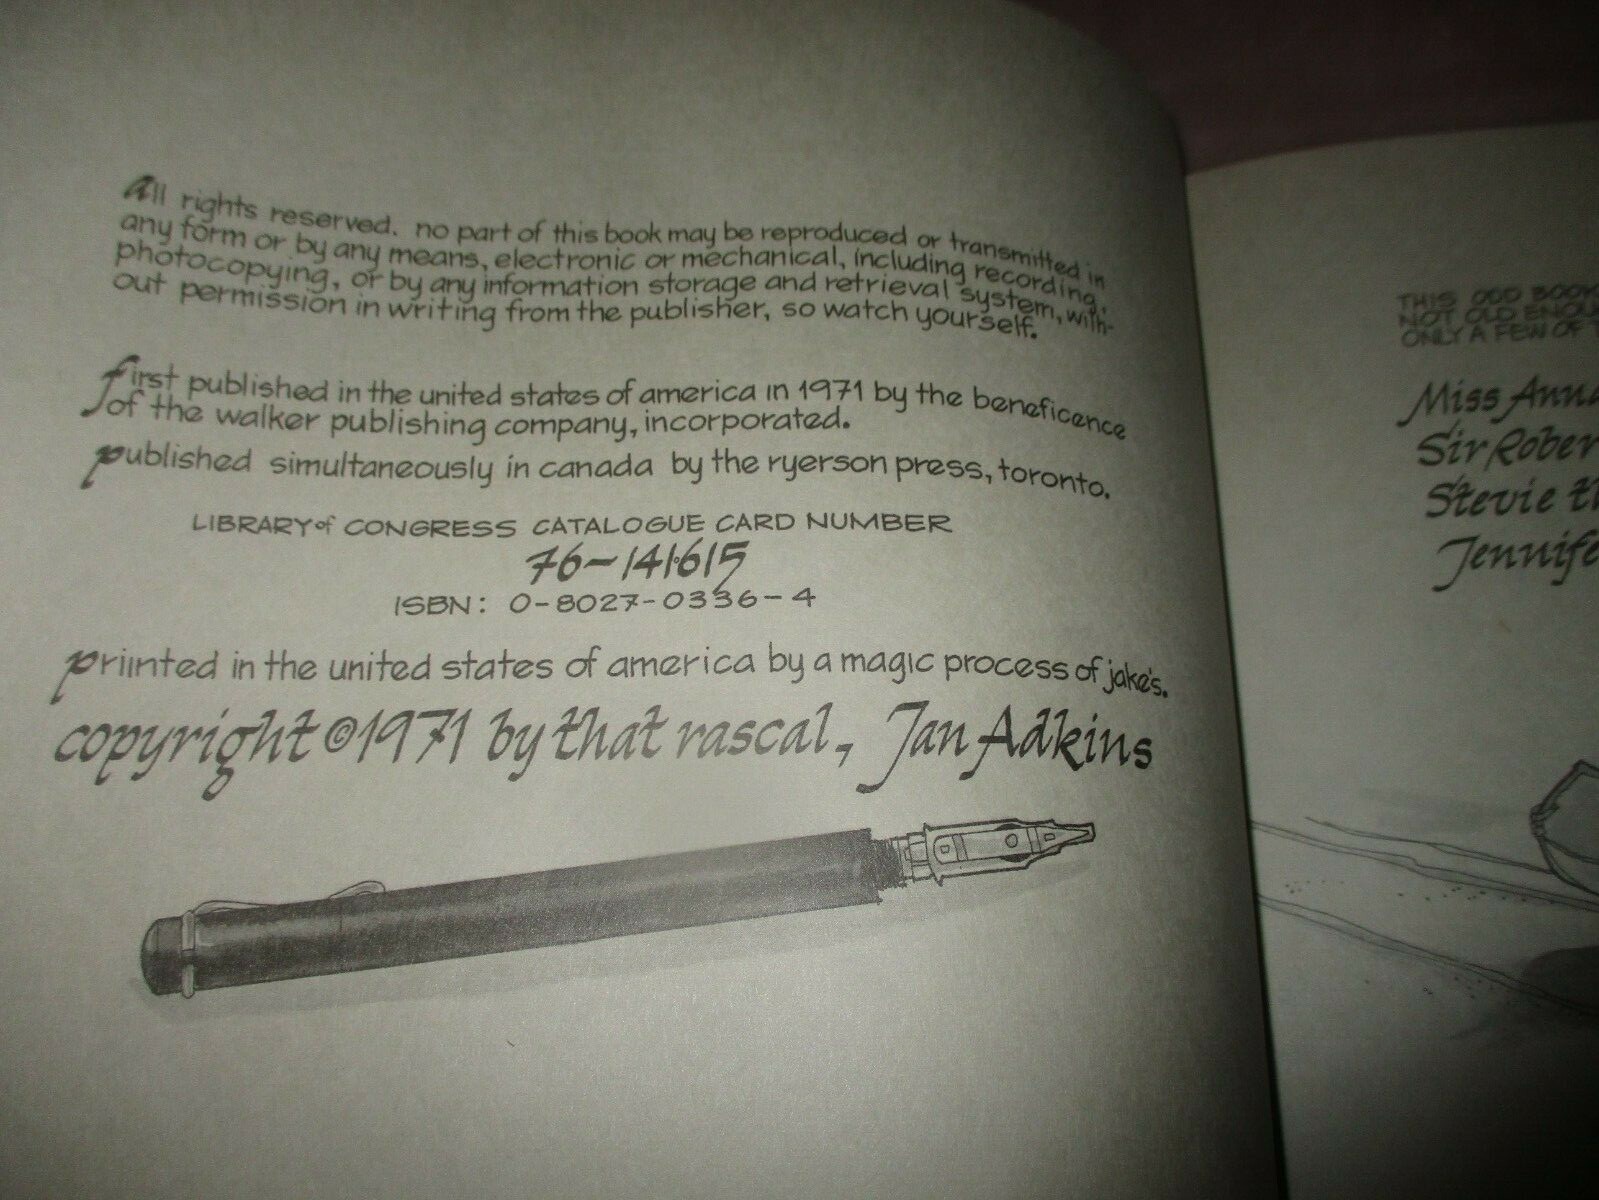 all rights reserved. no part of this book may be reproduced or transmitted in
any form or by any means, electronic or mechanical, including recording,
photocopying, or by any information storage and retrieval system, with-
out permission in writing from the publisher, so watch yourself.
first published in the united states of america in 1971 by the beneficence
of the walker publishing company, incorporated.
published simultaneously in canada by the ryerson press, toronto.
LIBRARY of CONGRESS CATALOGUE CARD NUMBER
76-141615
ISBN: 0-8027-0336-4
priinted in the united states of america by a magic process of jake's.
copyright ©1971 by that rascal, Jan Adkins
THIS ODD BODY
NOT OLD
ONLY A FEW OF
Miss Anna
Sir Rober
Stevie
Jennife